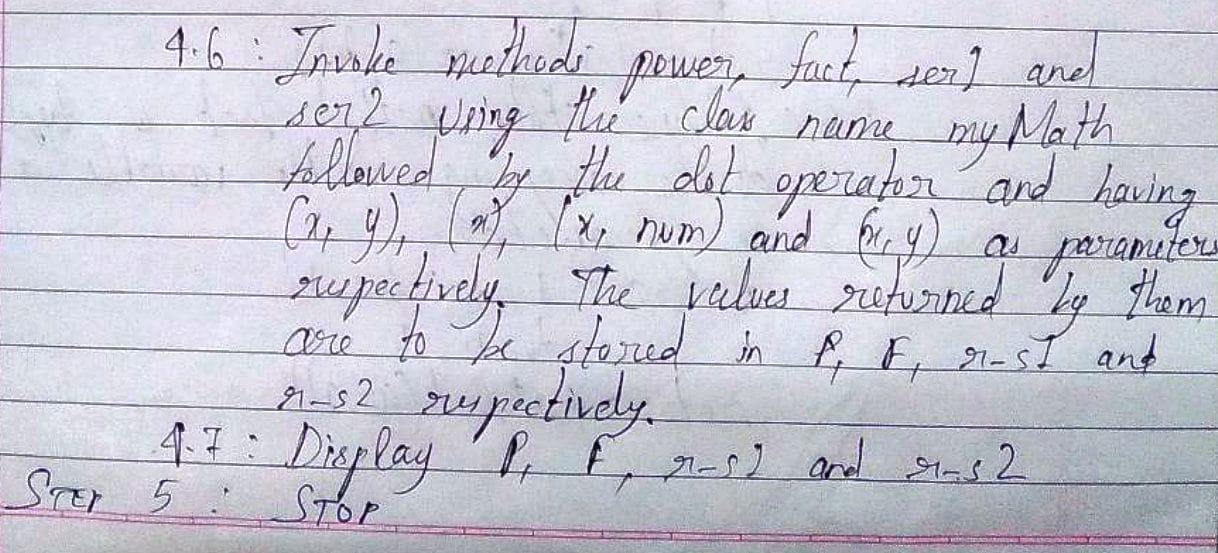 4.6 : Invoke methods power, fact, ser1 and
ser2 Using the class name myMath
followed by the dot operator and having
(x, y), (x), (x, num) and (x, y) as parameters
respectively. The values returned by them
are to be stored in P, F, r-s1 and
r-s2 respectively.
4.7 : Display P, F, r-s1 and r-s2
STEP 5 : STOP